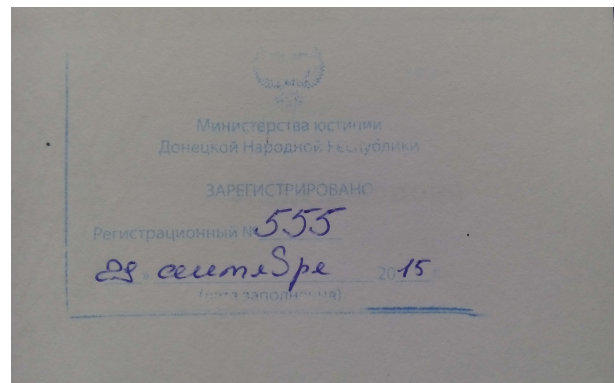 Министерства юстиции
Донецкой Народной Республики
ЗАРЕГИСТРИРОВАНО
Регистрационный № 555
29 » сентября 2015 г.
(дата заполнения)